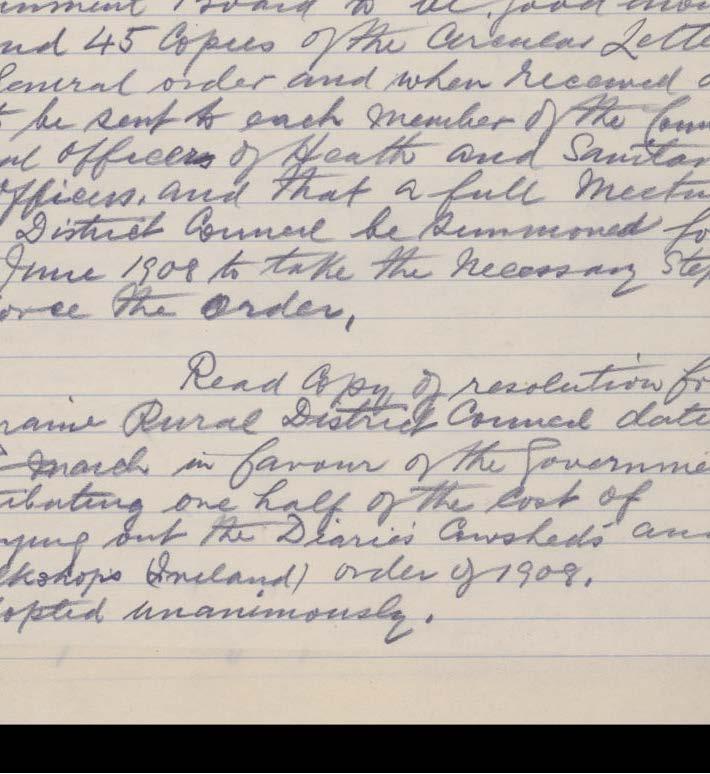 Board to be good enou
nd 45 Copies of the Circular Lette
General order and when received
be sent to each member of the Coun
al Officers of Heath and Sanitar
Officers, and that a full Meetin
District Council be Summoned fo
June 1908 to take the necessary Step
orce the order,
Read Copy of resolution fr
raine Rural District Council date
March in favour of the Governme
ibuting one half of the Cost of
ying out the Diaries Cowsheds and
kshops (Ireland) order of 1908.
opted unanimously.